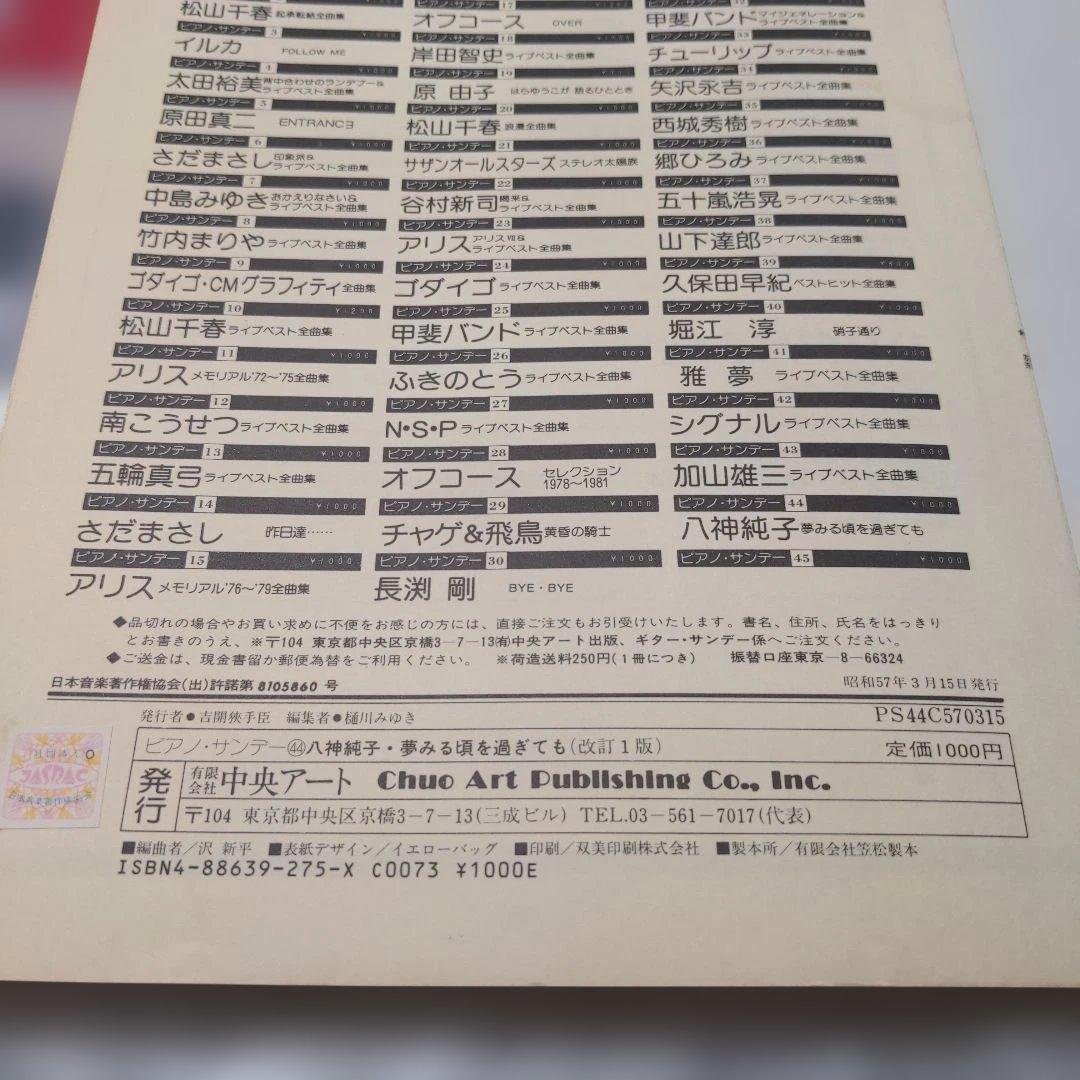 松山千春 起承転結全曲集
3
イルカ FOLLOW ME
4 ¥1000
太田裕美 背中合わせのランデブー&ライブベスト全曲集
ピアノ・サンデー 5 ¥1000
原田真二 ENTRANCE
6 ¥1000
さだまさし 印象派&ライブベスト全曲集
ピアノ・サンデー 7 ¥1000
中島みゆき おかえりなさい&ライブベスト全曲集
ピアノ・サンデー 8 ¥1000
竹内まりや ライブベスト全曲集
ピアノ・サンデー 9 ¥1000
ゴダイゴ・CMグラフィティ 全曲集
ピアノ・サンデー 10 ¥1200
松山千春 ライブベスト全曲集
ピアノ・サンデー 11 ¥1000
アリス メモリアル'72〜'75全曲集
ピアノ・サンデー 12 ¥1000
南こうせつ ライブベスト全曲集
ピアノ・サンデー 13 ¥1000
五輪真弓 ライブベスト全曲集
ピアノ・サンデー 14 ¥1000
さだまさし 昨日達……
ピアノ・サンデー 15 ¥1000
アリス メモリアル'76〜'79全曲集
17
オフコース OVER
ピアノ・サンデー 18
岸田智史 ライブベスト全曲集
ピアノ・サンデー 19
原 由子 はらゆうこが 語るひととき
ピアノ・サンデー 20 ¥1000
松山千春 浪漫全曲集
ピアノ・サンデー 21 ¥1000
サザンオールスターズ ステレオ太陽族
ピアノ・サンデー 22 ¥1000
谷村新司 喝采&ライブベスト全曲集
ピアノ・サンデー 23 ¥1000
アリス アリスⅦ&ライブベスト全曲集
ピアノ・サンデー 24 ¥1000
ゴダイゴ ライブベスト全曲集
ピアノ・サンデー 25 ¥1000
甲斐バンド ライブベスト全曲集
ピアノ・サンデー 26 ¥1000
ふきのとう ライブベスト全曲集
ピアノ・サンデー 27 ¥1000
N・S・P ライブベスト全曲集
ピアノ・サンデー 28 ¥1000
オフコース セレクション 1978〜1981
ピアノ・サンデー 29 ¥1000
チャゲ&飛鳥 黄昏の騎士
ピアノ・サンデー 30 ¥1000
長渕 剛 BYE・BYE
甲斐バンド マイジェネレーション&ライブベスト全曲集
ピアノ・サンデー 33
チューリップ ライブベスト全曲集
ピアノ・サンデー 34 ¥1000
矢沢永吉 ライブベスト全曲集
ピアノ・サンデー 35 ¥1000
西城秀樹 ライブベスト全曲集
ピアノ・サンデー 36 ¥1000
郷ひろみ ライブベスト全曲集
ピアノ・サンデー 37 ¥1000
五十嵐浩晃 ライブベスト全曲集
ピアノ・サンデー 38 ¥1000
山下達郎 ライブベスト全曲集
ピアノ・サンデー 39 ¥1000
久保田早紀 ベストヒット全曲集
ピアノ・サンデー 40 ¥1000
堀江 淳 硝子通り
ピアノ・サンデー 41 ¥1000
雅 夢 ライブベスト全曲集
ピアノ・サンデー 42 ¥1000
シグナル ライブベスト全曲集
ピアノ・サンデー 43 ¥1000
加山雄三 ライブベスト全曲集
ピアノ・サンデー 44 ¥1000
八神純子 夢みる頃を過ぎても
ピアノ・サンデー 45 ¥1000
◆品切れの場合やお買い求めに不便をお感じの方には、直接ご注文もお引受けいたします。書名、住所、氏名をはっきり
とお書きのうえ、※〒104 東京都中央区京橋3−7−13㈲中央アート出版、ギター・サンデー係へご注文ください。
◆ご送金は、現金書留か郵便為替をご利用ください。 ※荷造送料250円(1冊につき) 振替口座東京−8−66324
日本音楽著作権協会(出)許諾第 8105860 号 昭和57年3月15日発行
発行者●吉開狹手臣 編集者●樋川みゆき PS44C570315
ピアノ・サンデー㊹八神純子・夢みる頃を過ぎても(改訂1版) 定価1000円
発行 有限会社 中央アート Chuo Art Publishing Co., Inc.
〒104 東京都中央区京橋3−7−13(三成ビル) TEL.03−561−7017(代表)
JASRAC
■編曲者/沢 新平 ■表紙デザイン/イエローバッグ ■印刷/双美印刷株式会社 ■製本所/有限会社笠松製本
ISBN4-88639-275-X C0073 ¥1000E